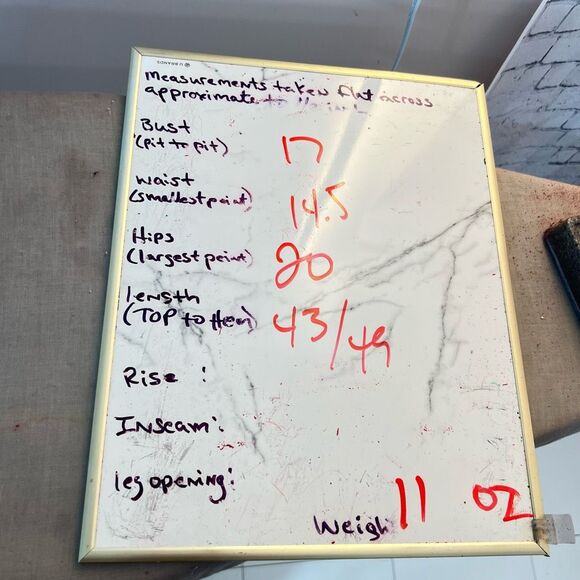 U BRANDS
Measurements taken flat across
approximate
Bust
(pit to pit) 17
waist
(smallest point) 14.5
Hips
(largest point) 20
length
(TOP to Hem) 43/49
Rise :
Inseam:
leg opening:
Weigh 11 oz